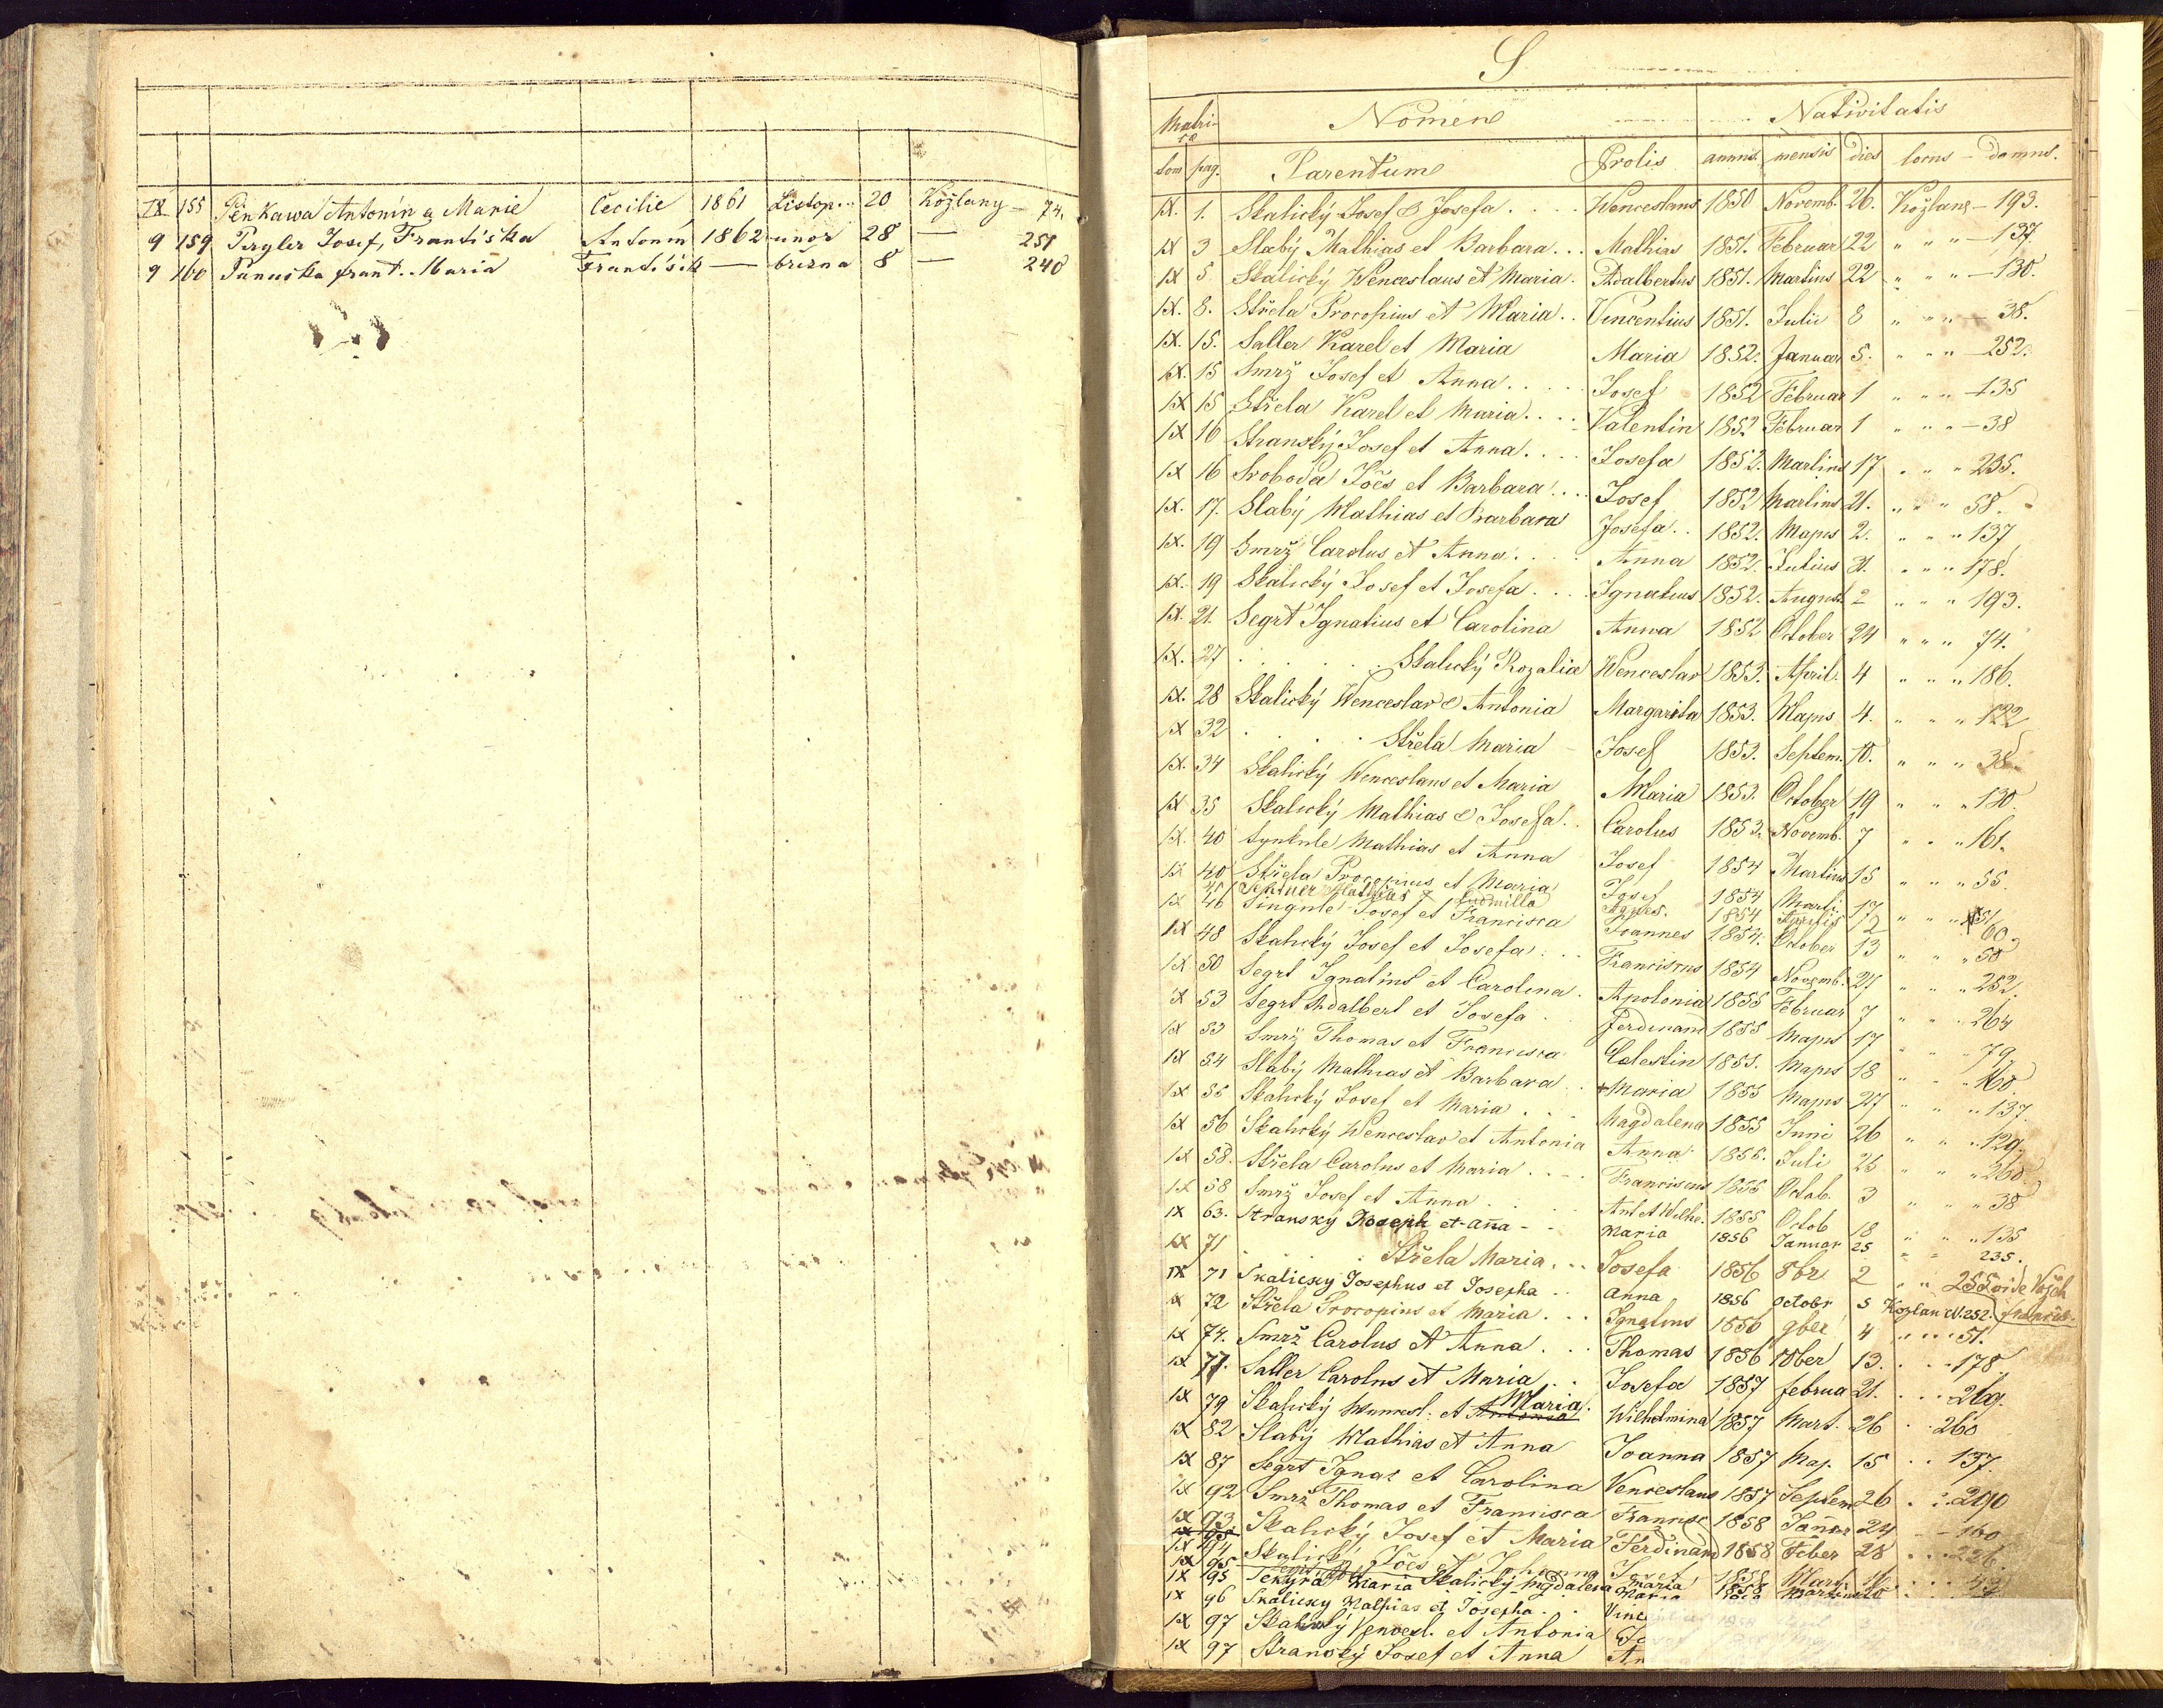 IX 155 Pěnkawa Antonín a Marie Cecilie 1861 Listop. 20 Kožlany – 74.
9 159 Pergler Josef, Františka Antonín 1862 únor 28 — 251
9 160 Panuška Frant. Maria František — března 8 — 240
S
Matricæ Nomen Nativitatis
tom pag. Parentum Prolis annus. mensis dies locus – domus.
IX. 1. Skalický Josef & Josefa . . . . Wenceslaus 1850 Novemb. 26. Kožlany – 193.
IX 3 Slabý Mathias et Barbara . . . Mathias 1851. Februar 22 " " " – 137.
IX 5 Skalický Wenceslaus et Maria. Adalbertus 1851. Martius 22 " " " – 130.
IX. 8. Střela Procopius et Maria . . Vincentius 1851. Julii 8 " " " – 38.
IX. 15. Saller Karel et Maria Maria 1852. Januar 5. " " " – 252.
IX. 15 Smrž Josef et Anna . . . . . Josef 1852 Februar 1 " " " – 135
IX 15 Střela Karel et Maria . . . . Valentin 1852 Februar 1 " " " – 38
IX 16 Stranský Josef et Anna . . . . Josefa 1852. Martius 17 " " " 235.
IX 16 Svoboda Jões et Barbara . . . . Josef 1852 Martius 21. " " " 58.
IX. 17. Slabý Mathias et Barbara Josefa . . 1852. Majus 2. " " " 137
IX. 19 Smrž Carolus et Anna . . . . Anna 1852. Julius 21. " " " 178.
IX. 19 Skalický Josef et Josefa . . . . Ignatius 1852. August. 2 " " " 193.
IX. 21. Segrt Ignatius et Carolina Anna 1852 October 24 " " " 74.
IX. 27 . . . . . Skalický Rozalia Wenceslav 1853. April. 4 " " " 186.
IX. 28 Skalický Wenceslav & Antonia Margarita 1853. Majus 4. " " " 122
IX 32 . . . . Střela Maria – Josef 1853. Septem. 10. " " " 38
IX. 34 Skalický Wenceslaus et Maria Maria 1853. October 19 " " " 130.
IX 35 Skalický Mathias & Josefa. Carolus 1853. Novemb. 7 " " " 161.
IX. 40 Synkule Mathias et Anna Josef 1854 Martius 15 " " " 55.
IX 40 Střela Procopius et Maria Josef 1854 Marti. 17 " " " 51
45 Mathias & Ludmilla Agnes. 1854 Aprilis 2 60
IX 46 Singule Josef et Francisca Joannes 1854. October 13 " " " 58
IX 48 Skalický Josef et Josefa . . . Franciscus 1854 Novemb. 27 " " " 252
IX 50 Segrt Ignatius et Carolina . Apolonia 1855 Februar 7 " " " 264
IX 53 Segrt Adalbert et Josefa . Ferdinand 1855 Majus 17 " " " 79
IX 53 Smrž Thomas et Francisca Celestin 1855. Majus 18 " " " 160
IX 54 Slabý Mathias et Barbara . . + Maria 1855 Majus 27 " " " 137.
IX 55 Skalický Josef et Maria . . . Magdalena 1855 Juni 26 " " " 129.
IX 56 Skalický Wenceslav et Antonia Anna 1855. Juli 25 " " " 260
IX 58. Střela Carolus et Maria . . . Franciscus 1855 Octob. 3 " " " 38
IX 58 Smrž Josef et Anna . . . Ant et Wilhe. 1855 Octob 18 " " " 135
IX 63. Stranský Joseph et Anna – . . Maria 1856 Januar 25 " " 235.
IX 71 . . . . Střela Maria . . . Josefa 1856 8br 2 " " 255
IX 71 Skalicky Josephus et Josepha . . Anna 1856 Octobr 5 Kozlan N. 252.
IX 72 Střela Procopius et Maria . . . Ignatius 1856 9ber 4 . . . . 51.
IX 74. Smrž Carolus et Anna . . . Thomas 1856 10ber 13. . . . 178
IX 77. Saller Carolus et Maria . . Josefa 1857 Februa 21. . . . 269.
IX 79 Skalický Wencesl. et Antonia Maria. Wilhelmina 1857 Mart. 26 . . 260
IX 82 Slabý Mathias et Anna Joanna 1857 Maj. 15 . . 137.
IX 87 Segrt Ignaz et Carolina Venceslaus 1857 Septem 26 . . 290
IX 92 Smrž Thomas et Francisca Francisc 1858 Januar 24 – 160
IX 93 Skalický Josef et Maria Ferdinand 1858 Feber 28 . . . 226
IX 94 Skalický Jões et Johanna Josef 1858 Mart.
IX 95 Sekyra Maria Skalický Magdalena Maria 1858
IX 96 Skalicky Mathias et Josepha . . Vinc
IX 97 Skalický Vencesl. et Antonia Jo
IX 97 Stranský Josef et Anna An